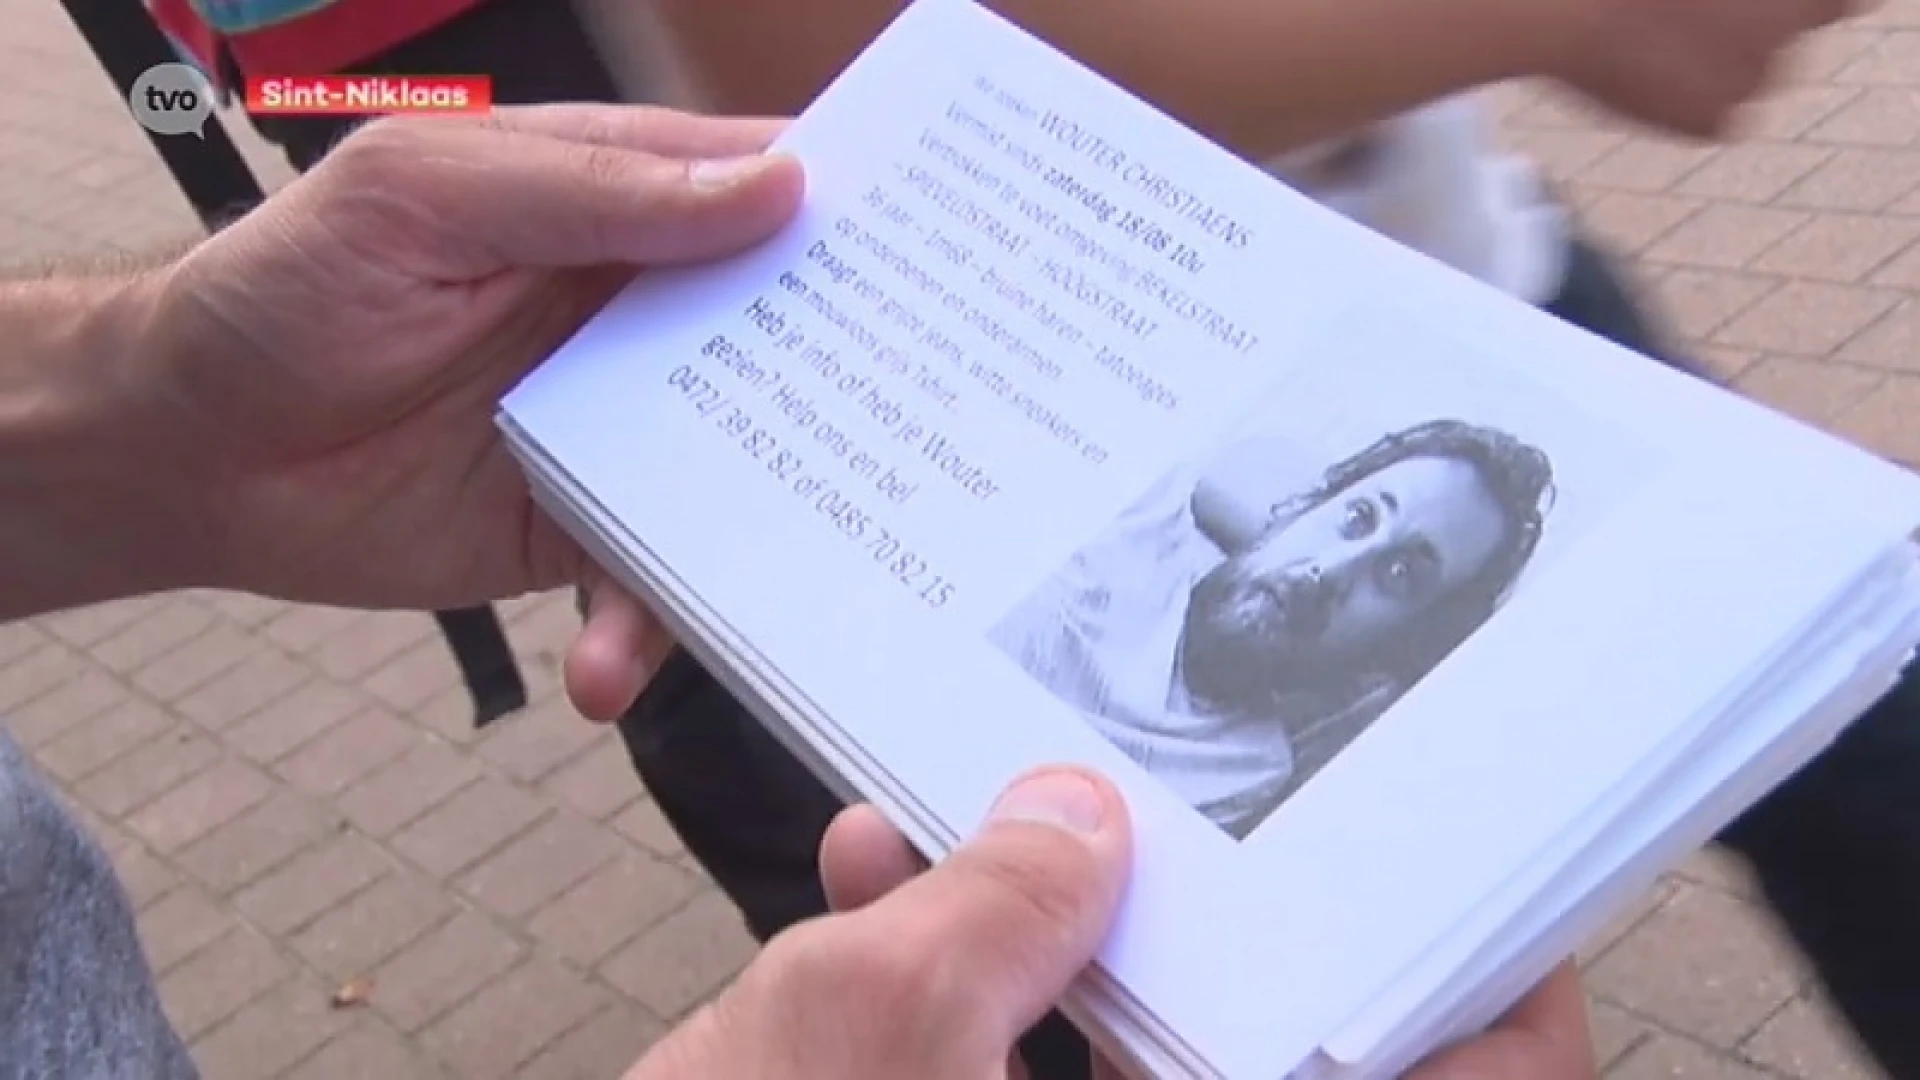 tvo
Sint-Niklaas
We zoeken WOUTER CHRISTIAENS
Vermist sinds zaterdag 18/08 10u
Vertrokken te voet omgeving BEKELSTRAAT
– SPIEVELDSTRAAT – HOOGSTRAAT
36 jaar – 1m68 – bruine haren – tatoeages
op onderbenen en onderarmen.
Draagt een grijze jeans, witte sneakers en
een mouwloos grijs Tshirt.
Heb je info of heb je Wouter
gezien? Help ons en bel
0472/ 39 82 82 of 0485 70 82 15